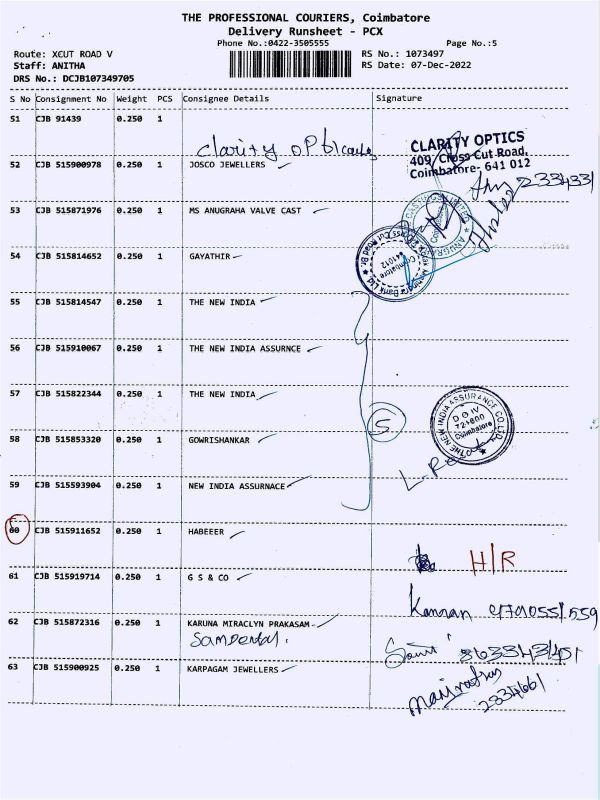 THE PROFESSIONAL COURIERS, Coimbatore
Delivery Runsheet - PCX
Phone No.:0422-3505555 Page No.:5
Route: XCUT ROAD V RS No.: 1073497
Staff: ANITHA RS Date: 07-Dec-2022
DRS No.: DCJB107349705
S No Consignment No Weight PCS Consignee Details Signature
51 CJB 91439 0.250 1
Clarity opticals
CLARITY OPTICS
409, Cross Cut Road,
Coimbatore- 641 012
52 CJB 515900978 0.250 1 JOSCO JEWELLERS
2334331
53 CJB 515871976 0.250 1 MS ANUGRAHA VALVE CAST
54 CJB 515814652 0.250 1 GAYATHIR
Coimbatore
641012
55 CJB 515814547 0.250 1 THE NEW INDIA
56 CJB 515910067 0.250 1 THE NEW INDIA ASSURNCE
57 CJB 515822344 0.250 1 THE NEW INDIA
5
THE NEW INDIA ASSURANCE CO.LTD.
D O IV
721800
Coimbatore
58 CJB 515853320 0.250 1 GOWRISHANKAR
59 CJB 515593904 0.250 1 NEW INDIA ASSURNACE
60 CJB 515911652 0.250 1 HABEEER
H/R
61 CJB 515919714 0.250 1 G S & CO
Kannan
62 CJB 515872316 0.250 1 KARUNA MIRACLYN PRAKASAM-
Samdental.
63 CJB 515900925 0.250 1 KARPAGAM JEWELLERS
2334661